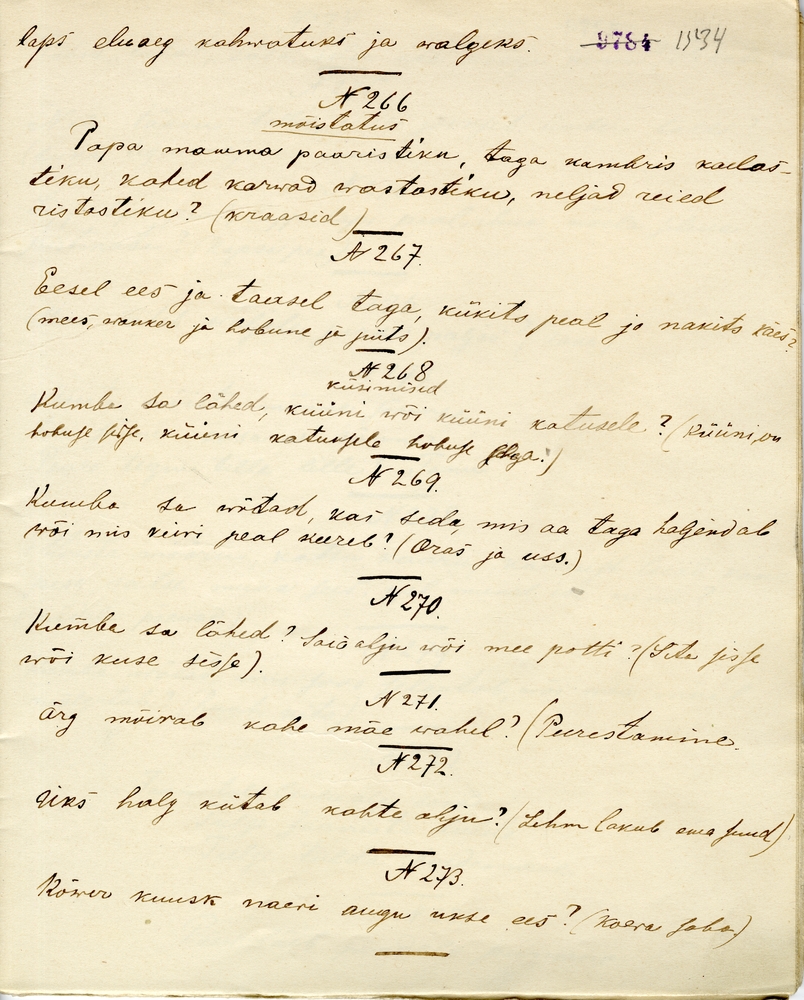 laps eluaeg kahwatuks ja walgeks. 9784 1534
N 266
mõistatus
Papa mamma paaristiku, taga kambris kaelas-
tiku, kahed karwad wastastiku, neljad reied
ristastiku? (kraasid)
N 267.
Eesel ees ja taasel taga, kükits peal ja nakits käes?
(mees, wanker ja hobune ja piits).
N 268
küsimised
Kumba sa lähed, küüni wõi küüni katusele? (Küüni, on
hobuse sisse, küüni katusele hobuse selga.)
N 269.
Kumba sa wõtad, kas seda, mis aa taga haljendab
wõi mis kiwi peal keereb? (Oras ja uss.)
N 270.
Kumba sa lähed? Saia ahju wõi mee potti? (Sita sisse
wõi kuse sisse).
N 271.
Ärg möirab kahe mäe wahel? (Peerestamine.
N 272.
Üks halg kütab kahte ahju? (Lehm lakub oma suud)
N 273.
Kõwer kuusk naeri augu ukse ees? (Koera saba.)